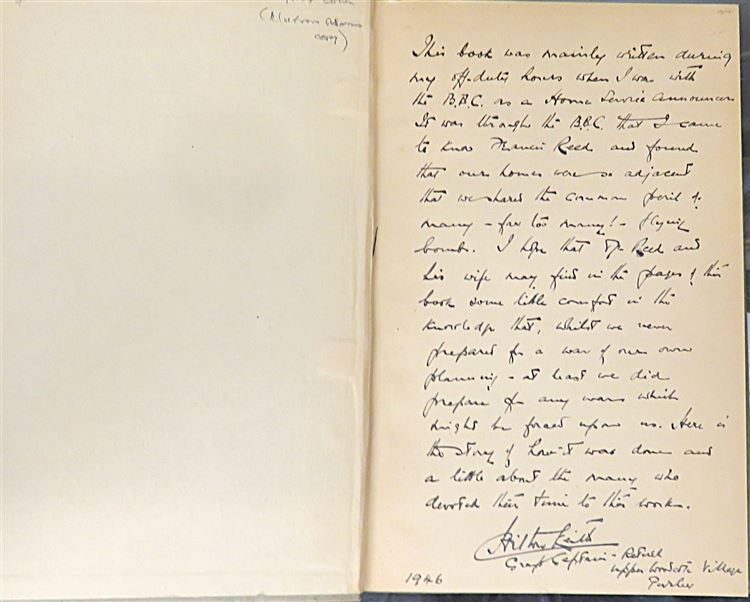 (
copy)
This book was mainly written during
my off-duty hours when I was with
the B.B.C. as a Home Service Announcer.
It was through the B.B.C. that I came
to know Francis Reed and found
that our homes were so adjacent
that we shared the common peril of
many - far too many! - flying
bombs. I hope that Mr. Reed and
his wife may find in the pages of this
book some little comfort in the
knowledge that, whilst we never
prepared for a war of our own
planning - at least we did
prepare for any wars which
might be forced upon us. Here is
the story of how it was done and
a little about the many who
devoted their time to this work.
Group Captain - Retired
Upper Woodcote Village
Purley
1946